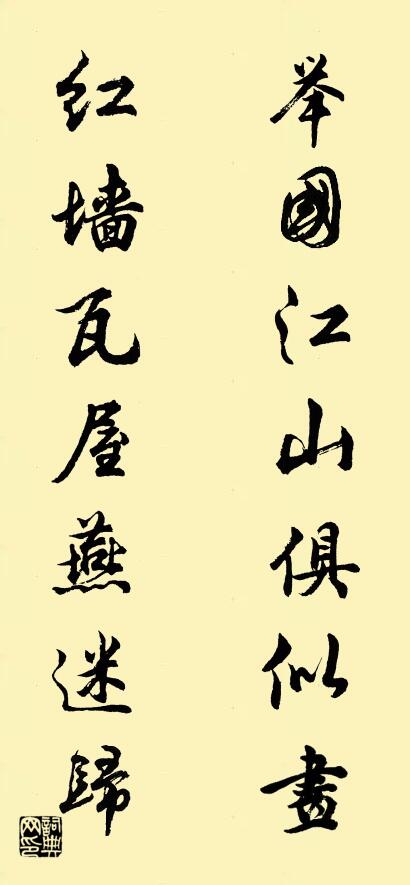 举國江山俱似畫
红墙瓦屋燕迷歸
詞典网印